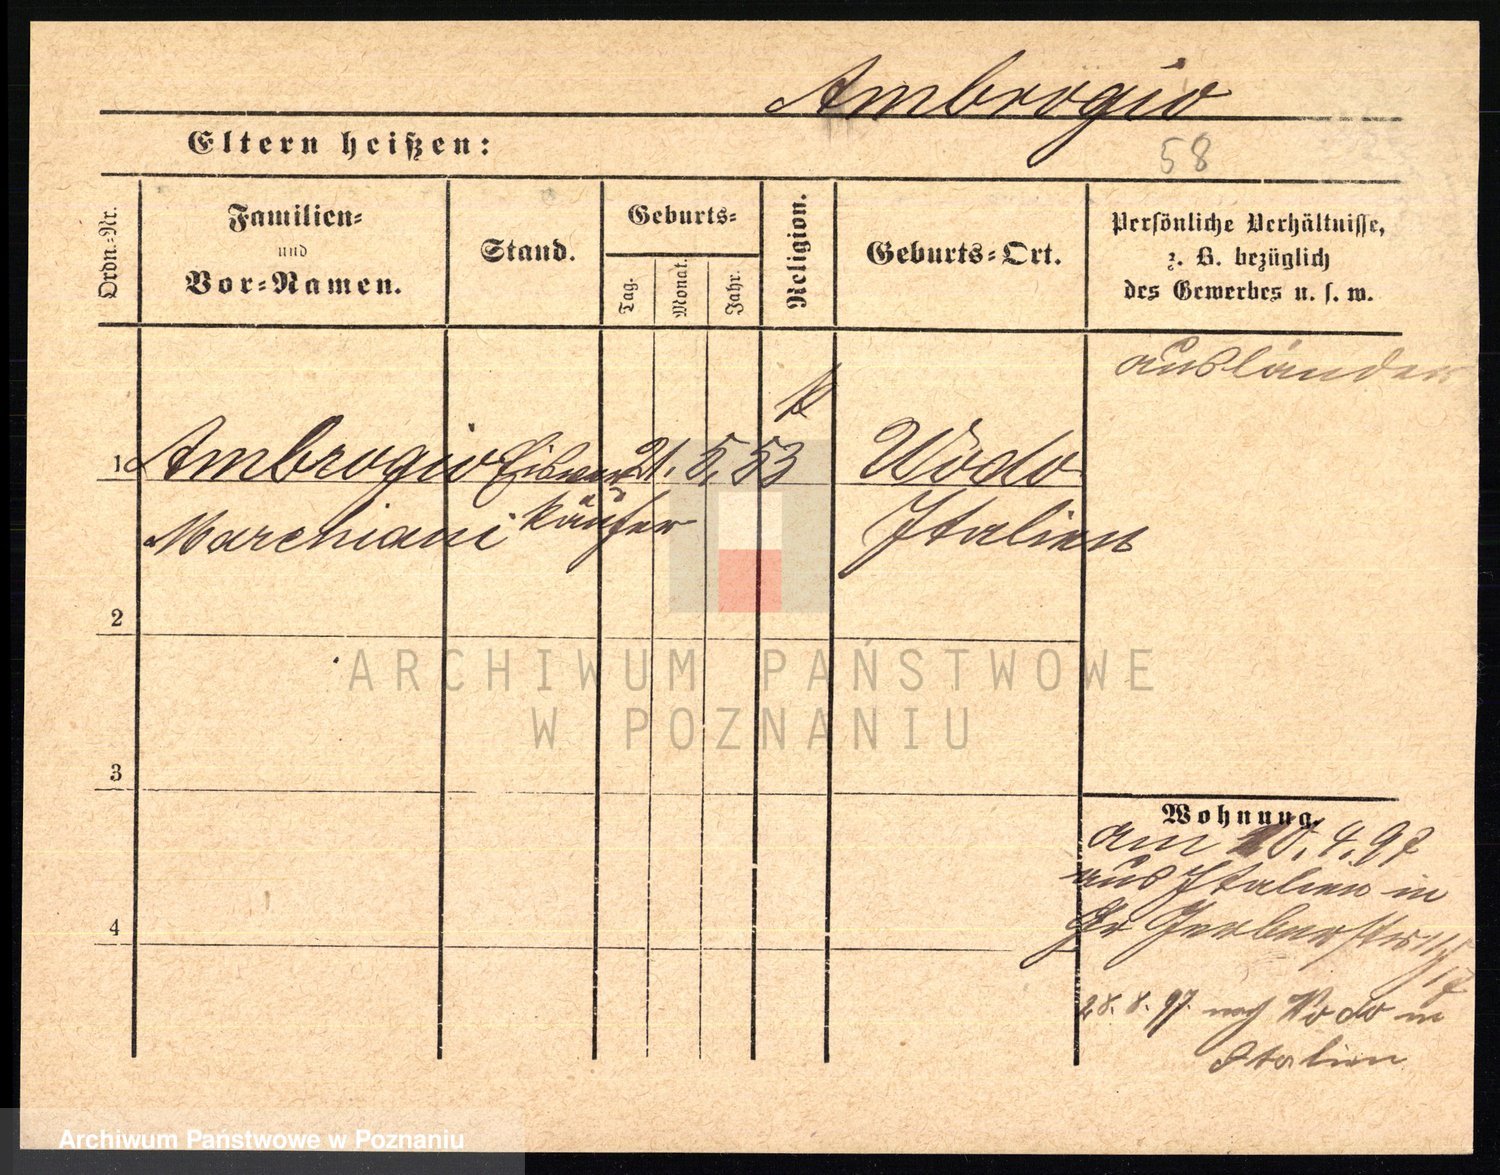 Ambrogio
58
Eltern heißen:
Ordn.-Nr.
Familien-
und
Vor-Namen.
Stand.
Geburts-
Tag.
Monat.
Jahr.
Religion.
Geburts-Ort.
Persönliche Verhältnisse,
z. B. bezüglich
des Gewerbes u. s. w.
ausländer
k
1 Ambrogio 21. 5. 53 Wodo
Marchiani käufer Italien
2
ARCHIWUM PAŃSTWOWE
W POZNANIU
3
Wohnung.
am 10. 4. 97
aus Italien in
Gr Gerberstr
4
28. 8. 97. nach Wodo in
Italien
Archiwum Państwowe w Poznaniu